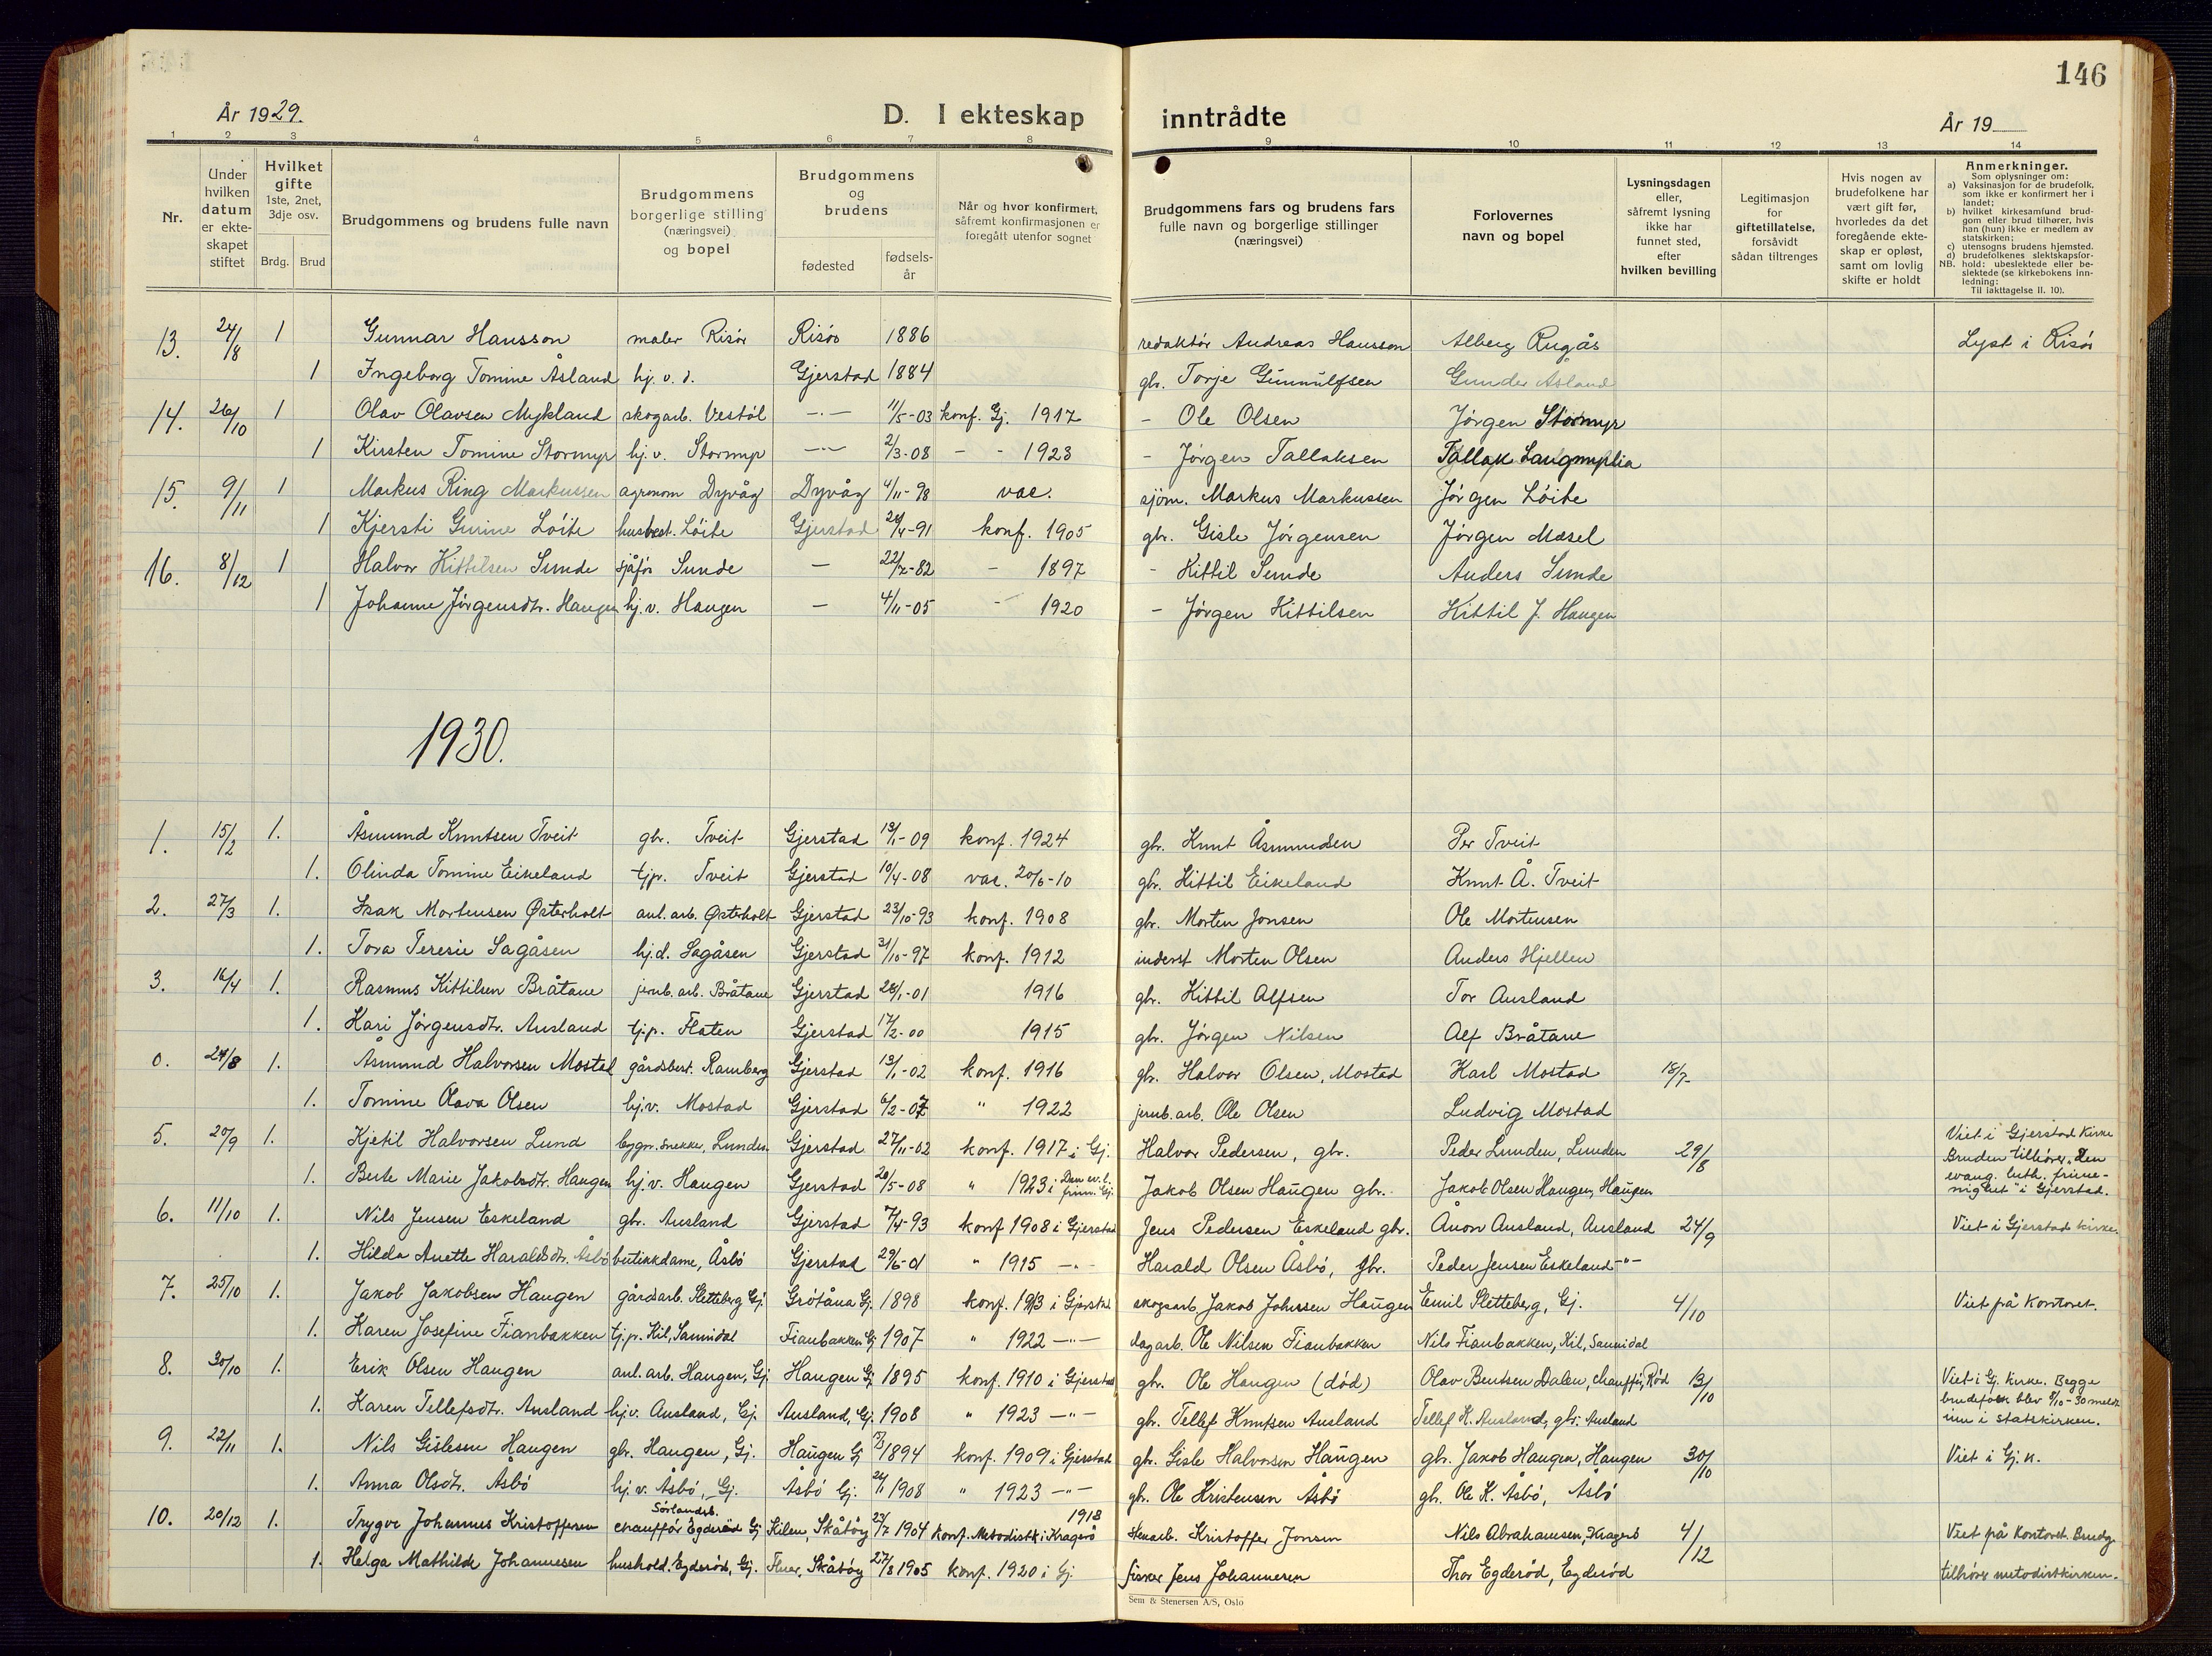 146
År 1929.
D. I ekteskap inntrådte
År 19
1 2 3 4 5 6 7 8 9 10 11 12 13 14
Nr.
Under hvilken datum er ekteskapet stiftet
Hvilket gifte 1ste, 2net, 3dje osv. Brdg. Brud
Brudgommens og brudens fulle navn
Brudgommens borgerlige stilling (næringsvei) og bopel
Brudgommens og brudens fødested fødselsår
Når og hvor konfirmert, såfremt konfirmasjonen er foregått utenfor sognet
Brudgommens fars og brudens fars fulle navn og borgerlige stillinger (næringsvei)
Forlovernes navn og bopel
Lysningsdagen eller, såfremt lysning ikke har funnet sted, efter hvilken bevilling
Legitimasjon for giftetillatelse, forsåvidt sådan tiltrenges
Hvis nogen av brudefolkene har vært gift før, hvorledes da det foregående ekteskap er opløst, samt om lovlig skifte er holdt
Anmerkninger.
Som oplysninger om:
a) Vaksinasjon for de brudefolk, som ikke er konfirmert her i landet;
b) hvilket kirkesamfund brudgom eller brud tilhører, hvis han (hun) ikke er medlem av statskirken;
c) utensogns brudens hjemsted.
d) brudefolkenes slektskapsforhold: ubeslektede eller beslektede (se kirkebokens innledning:
NB.
Til iakttagelse II. 10).
13. 24/8 1 Gunnar Hansson maler Risør Risør 1886 redaktør Andreas Hansson Alberg Rugås Lyst i Risør
1 Ingeborg Tomine Åsland hj. v. d. Gjerstad 1884 gbr. Torje Gunnulfsen Gunder Åsland
14. 26/10 1 Olav Olavsen Mykland skogarb. Vestøl -"- 11/5-03 konf. Gj. 1917 - Ole Olsen Jørgen Stormyr
1 Kirsten Tomine Stormyr hj. v. Stormyr -"- 2/3-08 - - 1923 - Jørgen Tallaksen Tallak Langmyrlia
15. 9/11 1 Markus Ring Markussen agronom Dyvåg Dyvåg 4/11-98 vac. sjøm. Markus Markussen Jørgen Löite
1 Kjersti Gurine Löite husbest. Löite Gjerstad 4-91 konf. 1905 gbr. Gisle Jörgensen Jørgen Mæsel
16. 8/12 1 Halvor Kittilsen Sunde sjåför Sunde - 22/2-82 - 1897 - Kittil Sunde Anders Sunde
1 Johanne Jörgensdtr. Haugen hj. v. Haugen - 4/11-05 - 1920 - Jørgen Kittilsen Kittil J. Haugen
1930.
1. 15/2 1. Åsmund Knutsen Tveit gbr. Tveit Gjerstad 13/1-09 konf. 1924 gbr. Knut Åsmundsen Per Tveit
1. Olinda Tomine Eikeland tjp. Tveit Gjerstad 10/4-08 vac. 20/6-10 gbr. Kittil Eikeland Knut Å. Tveit
2. 27/3 1. Isak Mortensen Østerholt anl. arb. Østerholt Gjerstad 23/10-93 konf. 1908 gbr. Morten Jonsen Ole Mortensen
1. Tora Teresie Sagåsen hj.d. Sagåsen Gjerstad 31/10-97 konf. 1912 inderst Morten Olsen Anders Hjellen
3. 16/4 1. Rasmus Kittilsen Bråtane jernb. arb. Bråtane Gjerstad 28/1-01 1916 gbr. Kittil Alfsen Tor Ausland
1. Kari Jörgensdtr. Ausland tj.p. Flaten Gjerstad 17/2-00 1915 gbr. Jørgen Nilsen Alf Bråtane
0. 24/8 1. Åsmund Halvorsen Mostad gårdsbest. Ramberg Gjerstad 13/1-02 konf. 1916 gbr. Halvor Olsen, Mostad Karl Mostad 18/7-
1. Tomine Olava Olsen hj.v. Mostad Gjerstad 6/2-07 " 1922 jernb. arb. Ole Olsen Ludvig Mostad
5. 20/9 1. Kjetil Halvorsen Lund bygn. snekker, Lunden Gjerstad 27/11-02 konf. 1917 i Gj. Halvor Pedersen, gbr. Peder Lunden, Lunden 29/8 Viet i Gjerstad Kirke
1. Berte Marie Jakobsdtr. Haugen hj. v. Haugen Gjerstad 20/5-08 " 1923 i Den ev. l. frim. Gj. Jakob Olsen Haugen gbr. Jakob Olsen Haugen, Haugen Bruden tilhører „Den evang. luth. frimenighet" i Gjerstad.
6. 11/10 1. Nils Jensen Eskeland gbr. Ausland Gjerstad 7/4-93 konf 1908 i Gjerstad Jens Pedersen Eskeland gbr. Ånon Ausland, Ausland 24/9 Viet i Gjerstad kirke.
1. Hilda Anette Haraldsdtr. Åsbö butikkdame, Åsbö Gjerstad 29/6-01 " 1915 -"- Harald Olsen Åsbö, gbr. Peder Jensen Eskeland -"-
7. 25/10 1. Jakob Jakobsen Haugen gårdsarb. Sletteberg Gj. Grötåna Gj. 1898 konf. 1913 i Gjerstad skogsarb. Jakob Johnsen Haugen Emil Sletteberg, Gj. 4/10 Viet på Kontoret.
1. Karen Josefine Fianbakken tj.p. Kil, Sannidal Fianbakken Gj 1907 " 1922 -"- dagarb. Ole Nilsen Fianbakken Nils Fianbakken, Kil, Sannidal
8. 30/10 1. Erik Olsen Haugen anl. arb. Haugen, Gj. Haugen Gj 1895 konf. 1910 i Gjerstad gbr. Ole Haugen (död) Olav Bentsen Dalen, chauffør, Röd 13/10 Viet i Gj. kirke. Begge
1. Karen Tellefsdtr. Ausland hj.v. Ausland, Gj. Ausland, Gj. 1908 " 1923 -"- gbr. Tellef Knutsen Ausland Tellef K. Ausland, gbr. Ausland brudefolk blev 8/10-30 meldt inn i statskirken.
9. 22/11 1. Nils Gislesen Haugen gbr. Haugen, Gj. Haugen Gj 1894 konf. 1909 i Gjerstad gbr. Gisle Halvorsen Haugen gbr. Jakob Haugen, Haugen 30/10 Viet i Gj. K.
1. Anna Olsdtr. Åsbö hj. v. Åsbö, Gj. Åsbö Gj. 1908 " 1923 -"- gbr. Ole Kristensen Åsbö gbr. Ole K. Åsbö, Åsbö
10. 20/12 1. Trygve Johannes Kristoffersen Sörlandsb. chauffør Egderöd Gj Kilen, Skåtöy 23/7 1904 konf. Metodistk. i Kragerö 1918 Stenarb. Kristoffer Jonsen Nils Abrahamsen, Kragerö 4/12 Viet på Kontoret. Brudg.
1. Helga Mathilde Johannesen hushold. Egderöd, Gj. Skåtöy 27/8 1905 konf. 1920 i Gj. fisker Jens Johannesen Thor Egderöd, Egderöd tilhører metodistkirken.
Sem & Stenersen A/S, Oslo